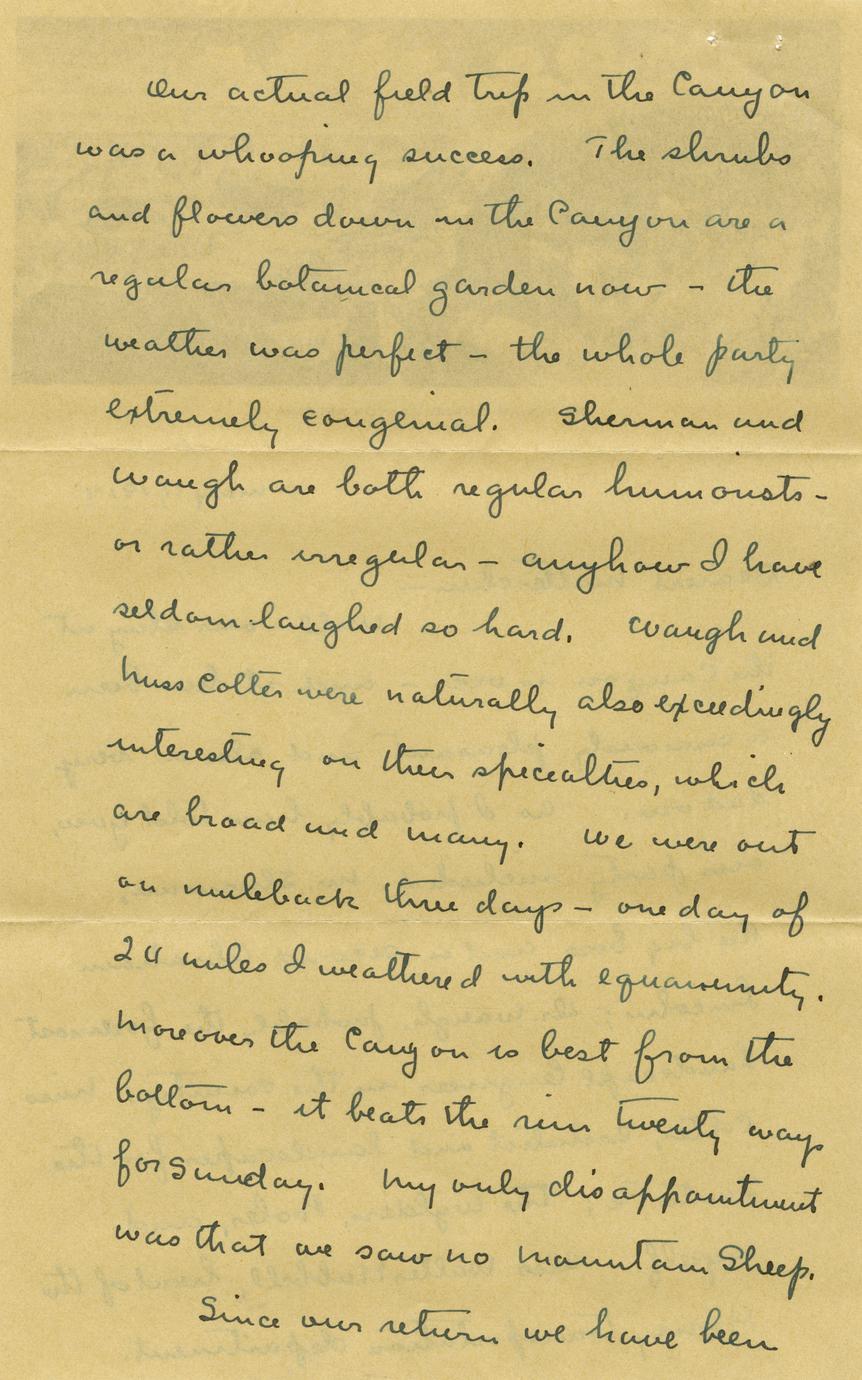 Our actual field trip in the Canyon
was a whooping success. The shrubs
and flowers down in the Canyon are a
regular botanical garden now – the
weather was perfect – the whole party
extremely congenial. Sherman and
Waugh are both regular humorists –
or rather irregular – anyhow I have
seldom laughed so hard. Waugh and
Miss Colter were naturally also exceedingly
interesting on their specialties, which
are broad and many. We were out
on muleback three days – one day of
miles I weathered with equanimity.
Moreover the Canyon is best from the
bottom – it beats the rim twenty ways
for Sunday. My only disappointment
was that we saw no mountain Sheep.
Since our return we have been